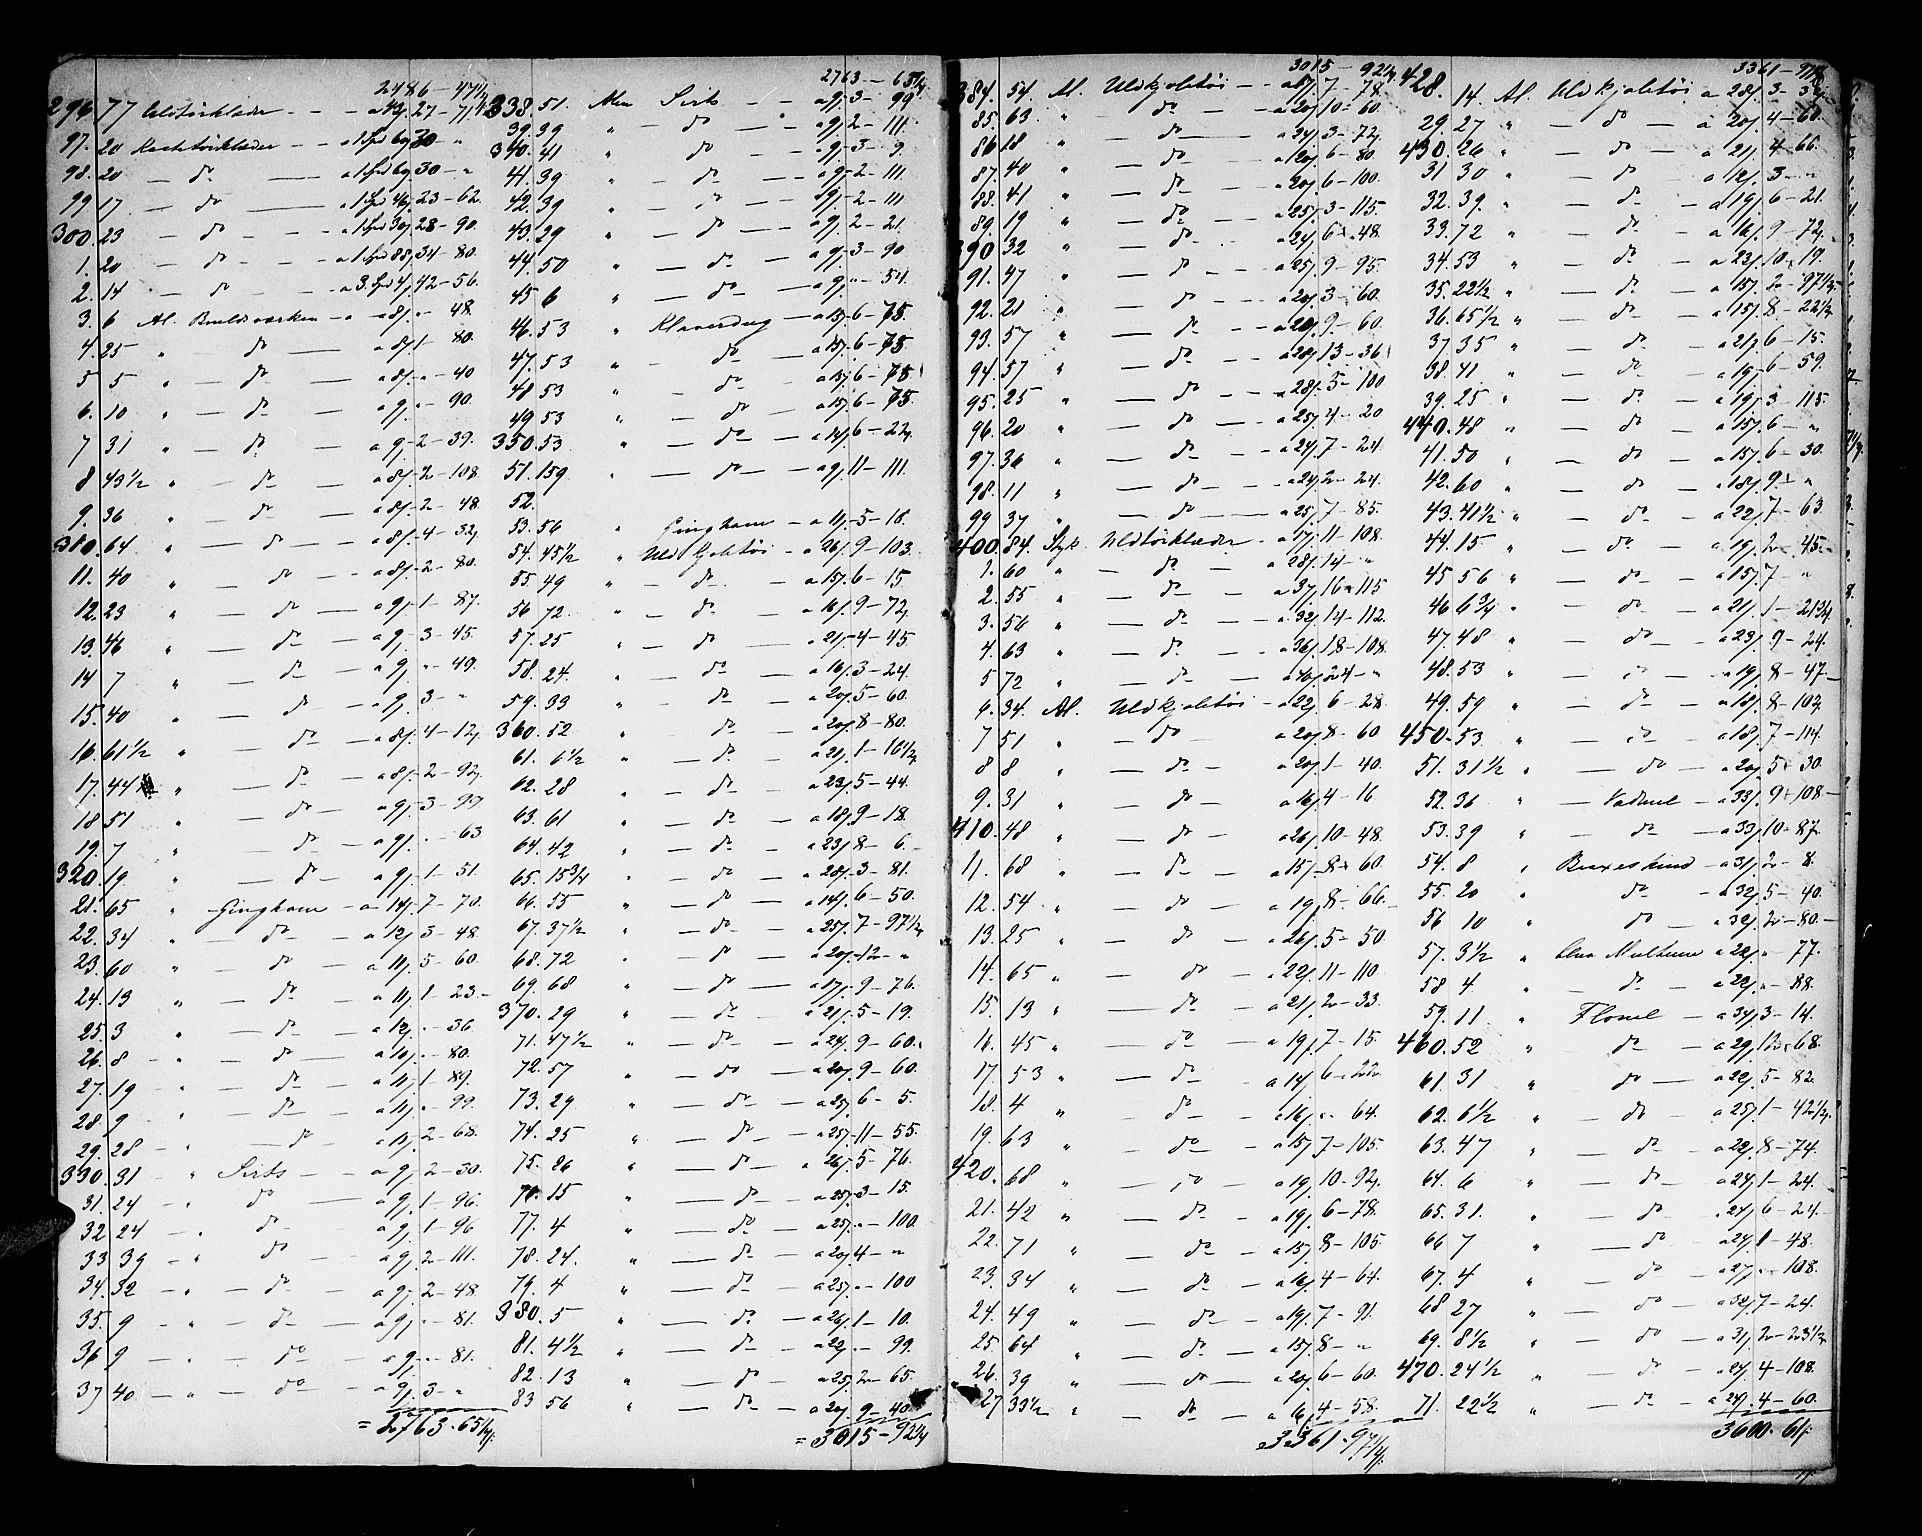 2486 - 47 1/4
296. 77 Uldtørklæder - - a 43/. 27 - 71
97. 20 - a 1 Spd 60/. 30 - "
98. 20 — do — a 1 Spd 60/. 30 - "
99 17 — do — a 1 Spd 46/. 23 - 62.
300. 23 — do — a 1 Spd 30/. 28 - 90.
1. 20 — do — a 1 Spd 88/. 34 - 80.
2. 14 — do — a 3 Spd 4/. 42 - 56.
3. 6 Al. - a 8/. " - 48.
4. 25 " do — a 8/. 1 - 80.
5 5 " — do — a 8/. " - 40
6. 10 " — do — a 9/. " - 90.
7 31 " — do — a 9/. 2 - 39.
8 43 1/2 " — do — a 8/. 2 - 108.
9. 36 " — do — a 8/. 2 - 48.
310. 64 " — do — a 8/. 4 - 32.
11. 40 " do — a 8/. 2 - 80.
12. 23 " — do — a 9/. 1 - 87.
13. 46 " — do — a 9/. 3 - 45.
14 7 " — do — a 9/. " - 49.
15. 40 " — do — a 9/. 3 - "
16. 61 1/2 " — do — a 8/. 4 - 12.
17. 44 " — do — a 8/. 2 - 92.
18 51 " — do — a 9/. 3 - 99.
19. 7 " — do — a 9/. " - 63
320. 19 " — do — a 9/. 1 - 51.
21. 65 " Gingham - a 14/. 7 - 70.
22. 34 " — do — a 12/. 3 - 48.
23. 60 " — do — a 11/. 5 - 60.
24. 13 " — do — a 11/. 1 - 23.
25. 3 " — do — a 12/. " - 36.
26. 8 " — do — a 10/. " - 80.
27. 19 " — do — a 11/. 1 - 89.
28. 9 " — do — a 11/. " - 99.
29. 28 " — do — a 11/. 2 - 68.
330. 31 " Sirts - - a 9/. 2 - 30.
31. 24 " do — a 9/. 1 - 96.
32 24 " do — a 9/. 1 - 96
33 39 " do — a 9/. 2 - 111.
34. 32 " — do — a 9/. 2 - 48.
35. 9 " — do — a 9/. " - 81.
36 9 — " do — a 9/. " - 81.
37 40 — " — do — a 9/. 3 - "
= 2763. 65 1/4.
2763 - 65 1/4
338. 51. Alen Sirts - - a 9/. 3 - 99
39. 39 " — do — a 9/. 2 - 111.
340. 41 " do — a 9/. 3 - 9.
41. 39 " — do — a 9/. 2 - 111.
42. 39 " — do — a 9/. 2 - 111
43. 29 " — do — a 9/. 2 - 21.
44. 50 " — do — a 9/. 3 - 90
45 6 " — do — a 9/. " - 54.
46. 53 " Klaverdug — a 13/. 6 - 75.
47. 53 " — do — a 13/. 6 - 75
48 53 " do — a 13/. 6 - 75
49 53 " — do — a 13/. 6 - 75.
350. 53 " — do — a 14/. 6 - 22.
51. 159 " — do — a 9/. 11 - 111.
52.
53. 56 " Gingham - a 11/. 5 - 18.
54. 45 1/2 " Uld Kjoletøi - a 26/. 9 - 103.
55. 49 " — do — a 15/. 6 - 15
56 72. " — do — a 16/. 9 - 72.
57. 25 " — do — a 21/. 4 - 45.
58. 24. " — do — a 16/. 3 - 24.
59. 33 " — do — a 20/. 5 - 60.
360. 52 " do — a 20/. 8 - 80.
61. 6 1/2 " — do — a 21/. 1 - 16 1/2
62. 28 " — do — a 23/. 5 - 44.
63. 61 " — do — a 18/. 9 - 18.
64. 42 " — do — a 23/. 8 - 6.
65. 15 3/4 " — do — a 28/. 3 - 81.
66. 55 " — do — a 14/. 6 - 50.
67. 37 1/2 " — do — a 25/. 7 - 97 1/2
68. 72 " — do — a 20/. 12 - "
69. 68 " — do — a 17/. 9 - 76.
370. 29 " — do — a 21/. 5 - 19.
71. 47 1/2 " — do — a 24/. 9 - 60.
72. 57 " — do — a 20/. 9 - 60.
73. 29 " — do — a 25/. 6 - 5.
74. 25 " — do — a 25/. 11 - 55.
75. 26 " — do — a 26/. 5 - 76.
76. 15 " — do — a 25/. 3 - 15.
77. 4 " — do — a 25/. " - 100.
78. 24. " — do — a 20/. 4 - "
79. 4 " — do — a 25/. " - 100
380. 5 " — do — a 26/. 1 - 10.
81. 4 1/2 " — do — a 22/. " - 99.
82. 13 " — do — a 25/. 2 - 65.
83 56 " — do — a 20/. 9 - 40.
= 3015 - 92 1/4
3015 - 92 1/4
384. 54. Al. Uldkjoletøi - - a 17/. 7 - 78.
85. 63. " — do — a 20/. 10 - 60.
86 18 " — do — a 24/. 3 - 72.
87. 40 " — do — a 20/. 6 - 80.
88. 41 " — do — a 20/. 6 - 100.
89. 19 " — do — a 25/. 3 - 115.
390 32 " — do — a 24/. 6 - 48.
91. 47 " — do — a 25/. 9 - 95.
92. 21 " — do — a 20/. 3 - 60.
93. 57 " — do — a 20/. 9 - 60.
94. 57 " — do — a 28/. 13 - 36
95. 25 " — do — a 28/. 5 - 100
96. 20 " — do — a 25/. 4 - 20
97. 36 " — do — a 24/. 7 - 24.
98. 11 " — do — a 24/. 2 - 24.
99 37 " — do — a 25/. 7 - 85.
400. 84. Styk. Uldtørklæder - a 17/. 11 - 108.
1. 60 " — do — a 28/. 14 - "
2. 55 " — do — a 37/. 16 - 115
3. 56 " — do — a 32/. 14 - 112.
4. 63 " — do — a 36/. 18 - 108.
5 72 " — do — a 40/. 24 - "
6. 34. Al. Uldkjoletøi - a 22/. 6 - 28.
7 51 " — do — a 20/. 8 - 60
8 8 " — do — a 20/. 1 - 40.
9. 31 " — do — a 16/. 4 - 16
410. 48 " — do — a 26/. 10 - 48.
11. 68 " — do — a 15/. 8 - 60.
12. 54. " — do — a 19/. 8 - 66.
13. 25 " — do — a 26/. 5 - 50
14. 65 " — do — a 22/. 11 - 110.
15. 13 " — do — a 21/. 2 - 33.
16. 45 " — do — a 19/. 7 - 15.
17. 53 " — do — a 14/. 6 - 22
18. 4 " — do — a 16/. " - 64.
19. 63 " — do — a 15/. 7 - 105.
420. 68 " — do — a 19/. 10 - 92.
21. 42 " — do — a 19/. 6 - 78.
22. 71 " — do — a 15/. 8 - 105.
23. 34 " — do — a 16/. 4 - 64.
24. 49 " — do — a 19/. 7 - 91.
25. 64 " — do — a 15/. 8 - "
26. 39 " — do — a 20/. 6 - 60.
27 33 1/2 " — do — a 16/. 4 - 58.
3361. 97 1/4.
3361 - 97 1/4
428. 14. Al. Uldkjoletøi a 28/. 3 - 32
29. 27 " — do — a 20/. 4 - 60.
430. 26 " — do — a 21/. 4 - 66.
31 30 " — do — a 12/. 3 - "
32. 39. " — do — a 19/. 6 - 21.
33. 72 " — do — a 16/. 9 - 72.
34. 53 " — do — a 23/. 10 - 19.
35. 22 1/2 " — do — a 15/. 2 - 97 1/2.
36. 65 1/2 " — do — a 15/. 8 - 22 1/2
37 35 " — do — a 21/. 6 - 15.
38. 41 " — do — a 19/. 6 - 59.
39. 25 " — do — a 19/. 3 - 115.
440. 48 " — do — a 15/. 6 - "
41. 50 " — do — a 15/. 6 - 30.
42. 60 " — do — a 18/. 9 - "
43. 41 1/2 " — do — a 22/. 7 - 63.
44. 15 " — do — a 19/. 2 - 45.
45 56 " — do — a 15/. 7 - "
46 6 3/4 " — do — a 21/. 1 - 21 3/4.
47. 48 " — do — a 23/. 9 - 24.
48. 53 " — do — a 19/. 8 - 47.
49. 59 " — do — a 18/. 8 - 102.
450. 53 " — do — a 18/. 7 - 114.
51. 31 1/2 " — do — a 20/. 5 - 30.
52. 36 " — Vadmel - a 33/. 9 - 108
53. 39 " — do — a 33/. 10 - 87.
54. 8 " Buxeskind - a 31/. 2 - 8.
55. 20 " do — a 32/. 5 - 40.
56 10 " do — a 32/. 2 - 80.
57. 3 1/2 " a 22/. " - 77.
58 4 " — do — a 22/. " - 88.
59. 11 " Flonel - a 34/. 3 - 14.
460. 52 " do — a 29/. 12 - 68.
61. 31 " do — a 22/. 5 - 82
62. 6 1/2 " do — a 25/. 1 - 42 1/2.
63. 47 " do — a 22/. 8 - 74.
64. 6 " — do — a 24/. 1 - 24.
65. 31. " — do — a 24/. 6 - 24.
66 7 " — do — a 24/. 1 - 48.
67. 4 " — do — a 27/. " - 108.
68 27 " — do — a 32/. 7 - 24.
69. 8 1/2 " — do — a 31/. 2 - 23 1/2
470. 24 1/2 " — do — a 24/. 4 - 108.
71. 22 1/2 " — do — a 24/. 4 - 60.
3600. 61/.